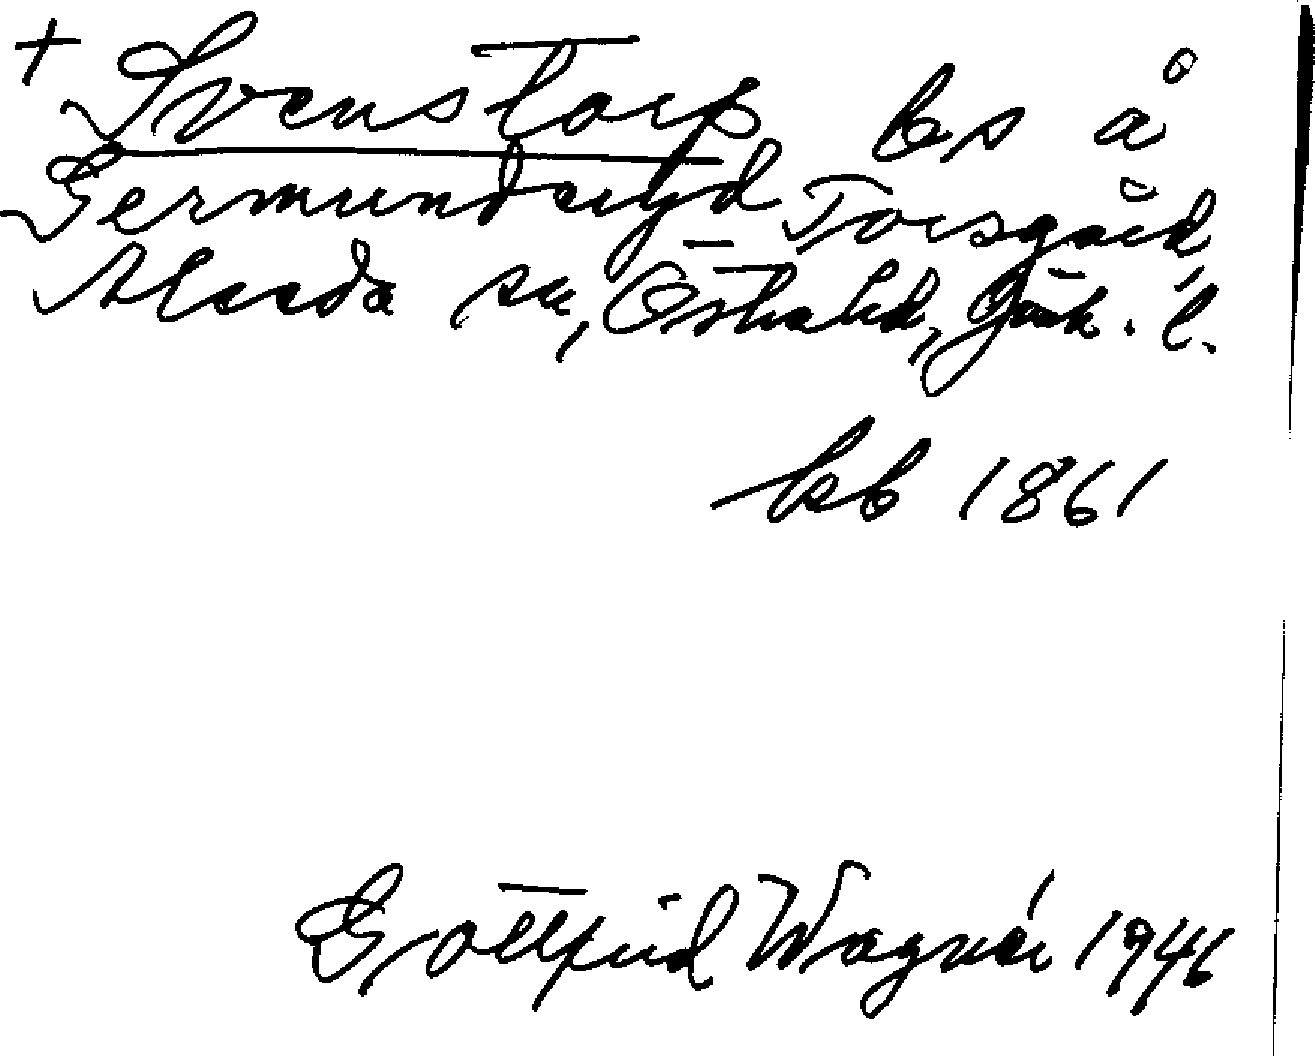 + Svenstorp bs å
Germunderyd Torsgård
Alseda sn, Östra hd, Jönk. l.
kb 1861
Gottfrid Wagnér 1946